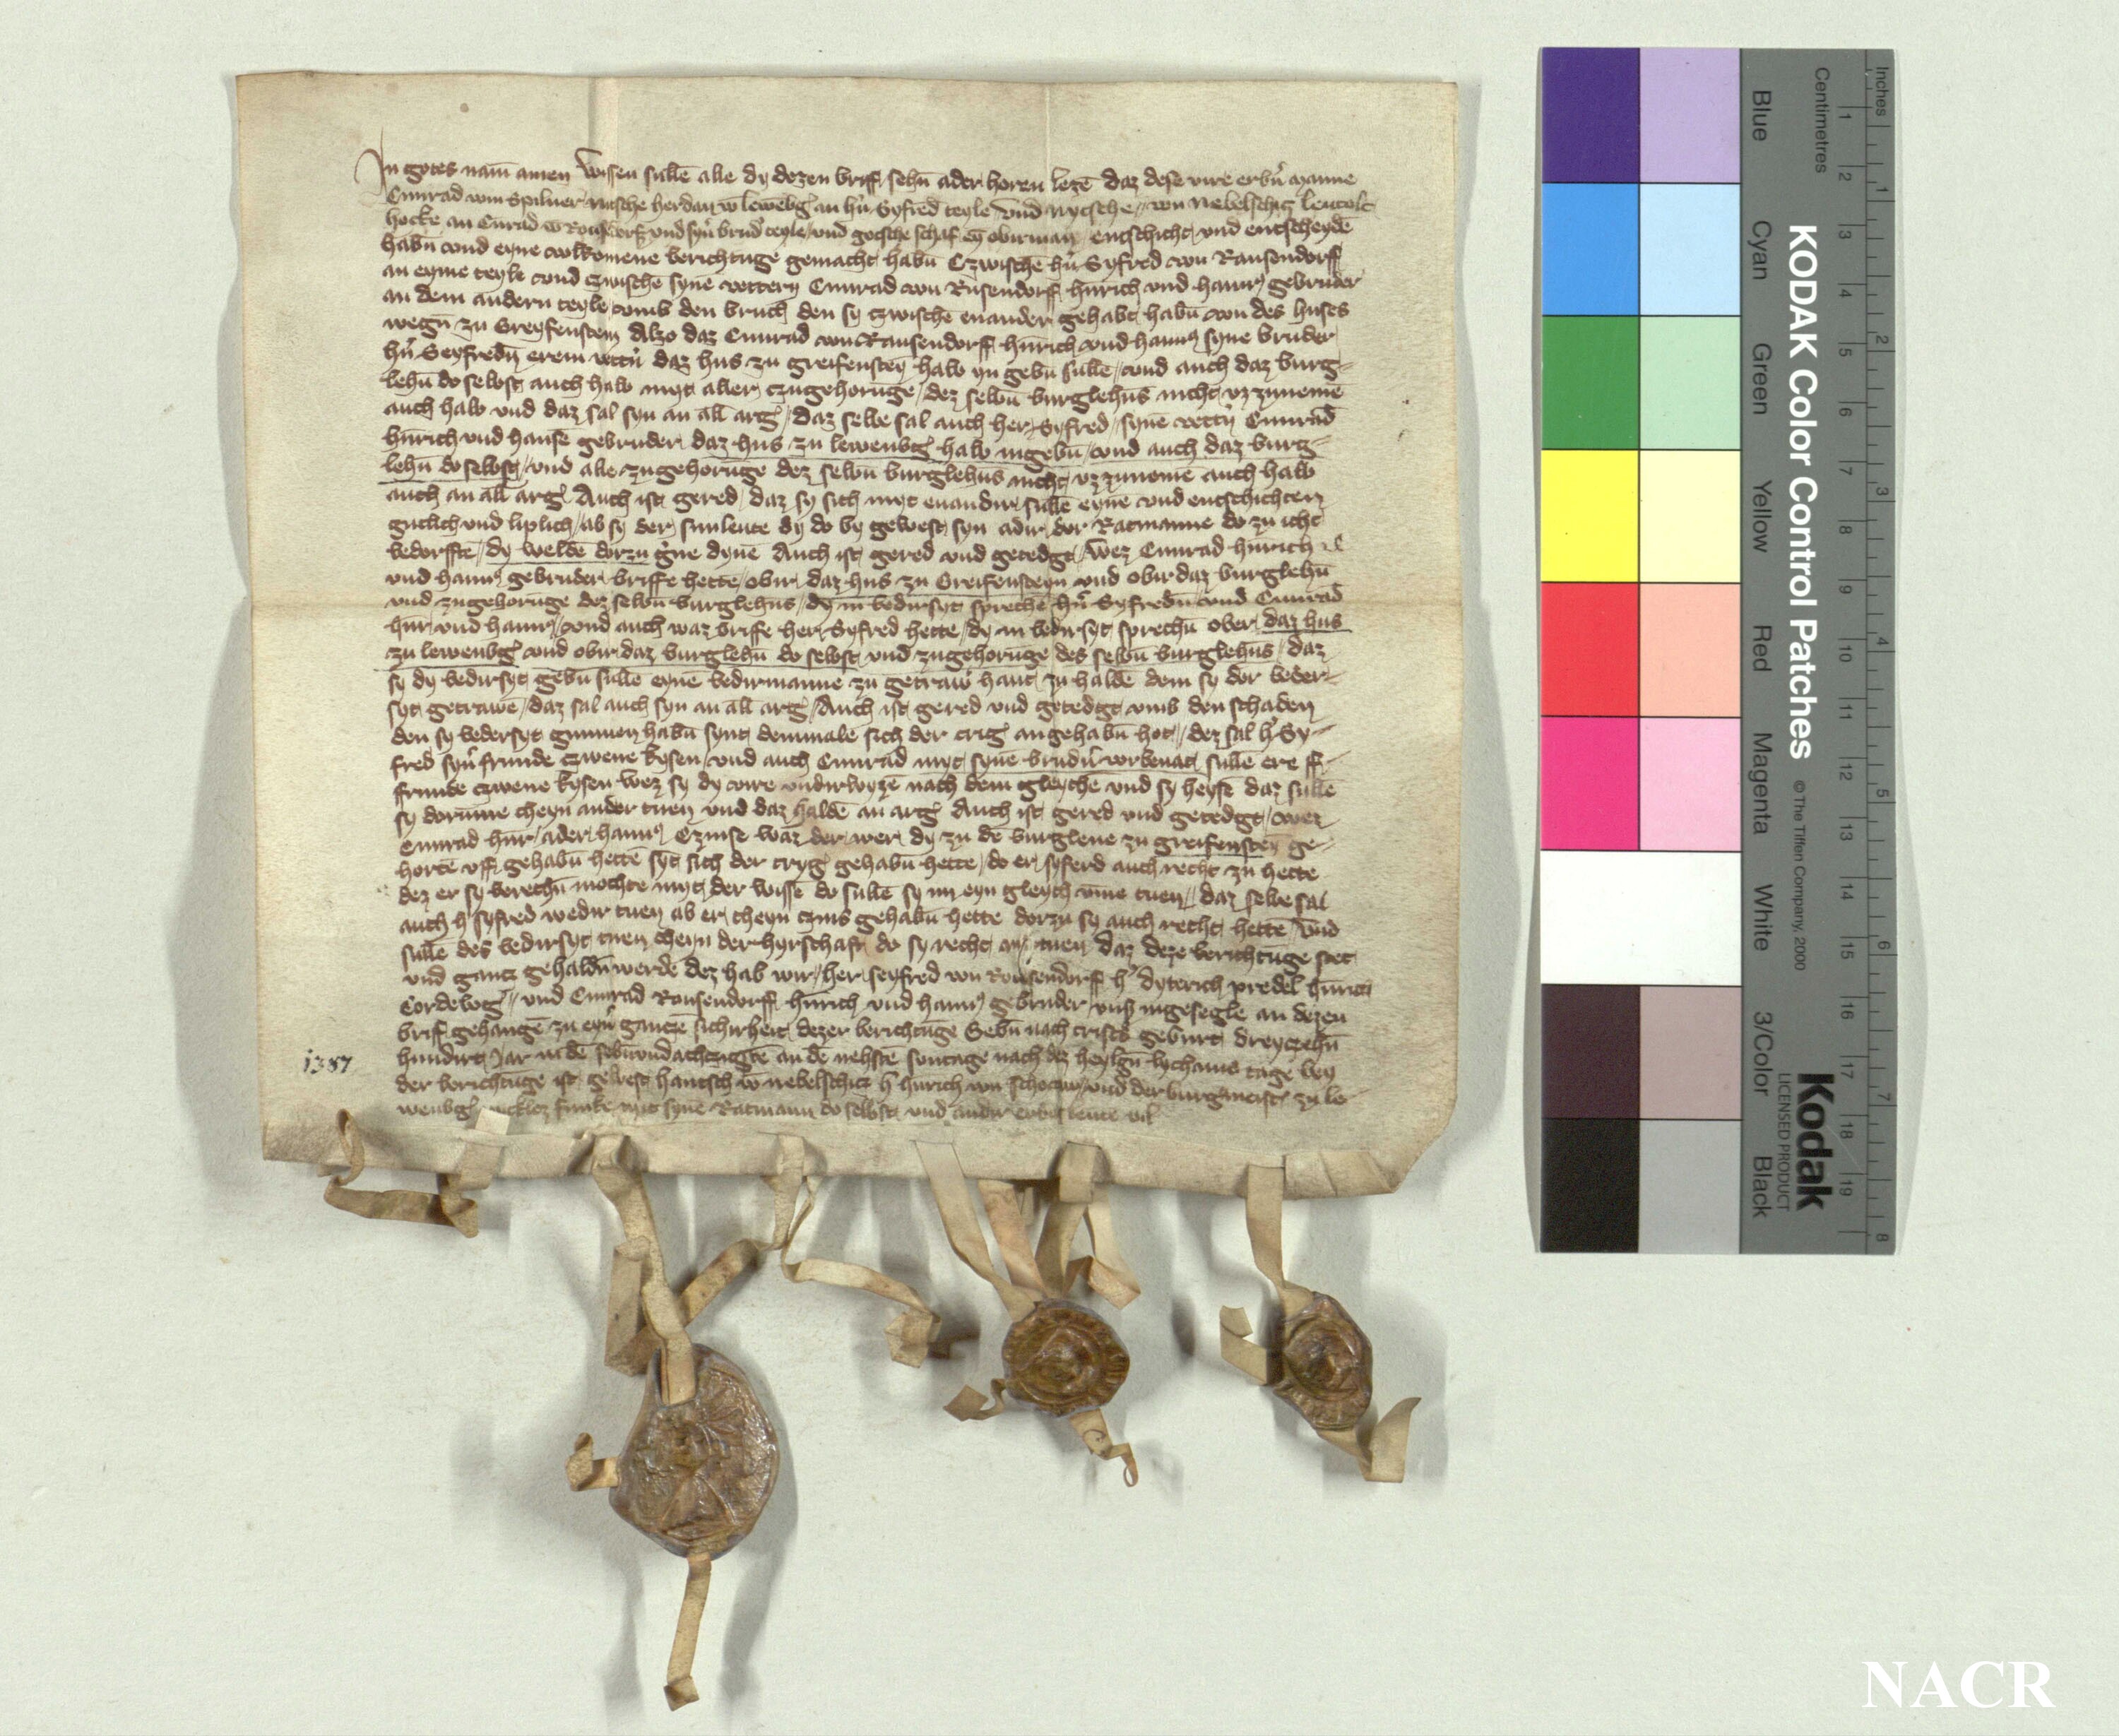 In gotes nam amen Wissen sullē alle dy dezen briff sehn ader horen lezē daz dese vire erbn̄ manne
Cunrad vom Spilner nitsche herdan vō lewēbḡ an hn̄ Syfred teyle vnd nytsche von Nebelschitz leutolt
hocke an Cūrad vō Rousdorf vnd syn̄ brud' teyle vnd gotsche schaf eȳ obirman entschicht vnd entscheydē
habn̄ vnd eyne volkomene berichtūge gemacht habn̄ Czwischē hn̄ Syfred von Rausendorff
an eyme teyle vnd zwischē synē vettern Cunrad von Rusendorff hinrich vnd hann' gebruder
an dem andern teyle vmb den bruch den sy czwischē enander gehabt habn̄ von des huses
wegn̄ zu Greyfensteyn Alzo daz Cunrad von Rausendorff hinrich vnd hann' syne bruder
hn̄ Seyfredn̄ erem vettn̄ daz hus zu greifensteȳ halb yn gebn̄ sullē vnd auch daz burg-
lehn̄ do selbst auch halb myt aller czugehorūge dez selbn̄ burglehns nicht vz zunemē
auch halb vnd daz sal syn an all arg' daz selbe sal auch her Syfred synē vettn̄ Cunrad
hinrich vnd hansē gebruder daz hus zu lewenbḡ halb ingebn̄ vnd auch daz burg-
lehn̄ do selbst vnd alle zugehorūge dez selbn̄ burglehns nicht vz zunemē auch halb
auch an all arg' Auch ist gered daz sy sich myt enandir sullē eynē vnd entschichten
gutlich vnd liplich ab sy der sunleute dy do by gewest syn adir der Ratmanne do zu icht
bedorfftē dy weldē dorzu g'ne dynē Auch ist gered vnd getedgt Wez Cunrad hinrich
vnd hann' gebruder briffe hette obir daz hus zu Greifensteyn vnd obir daz burglehn̄
vnd zugehorūge dez selbn̄ burglehns dy in bedirsyt sprechē hn̄ Syfredn̄ vnd Cunrad
hinr vnd hann' vnd auch waz briffe her Syfred hette dy in bedirsyt sprechn̄ ober daz hus
zu lewenbḡ vnd obir daz burglehn̄ do selbst vnd zugehorūge des selbn̄ burglehns daz
sy dy bedirsyt gebn̄ sullē eynē bedirmanne zu getraw' hant zu haldē dem sy dor beder-
syt getrawē daz sal auch syn an all arg' Auch ist gered vnd getedgt vmb den schaden
den sy bedersyt gnumen habn̄ synt demmale sich der crig' angehabn̄ hot dez sal h' Sy-
fred syn̄ frunde czwene kysen vnd auch Cunrad myt synē brudn̄ vorbenāt sullē ere ff-
frunde czwene kysen wez sy dy vire vndirwyzē nach dem gleychē vnd sy heysē daz sullē
sy dorūme cheyn ander tuen vnd daz haldē an arg' Auch ist gered vnd getedgt wez
Cunrad hinr ader hann' Czinse waz der wer dy zu dē burglene zu greifensteȳ ge-
hortē vff gehabn̄ hettē syt sich der cryg' gehabn̄ hette do er syferd auch recht zu hette
dez er sy berechn̄ mochte myt der wissē do sullē sy im eyn gleych vme tuen daz selbe sal
auch h' syfred wedir tuen ab er cheyn czins gehabn̄ hette dorzu sy auch recht hettē Vnd
sullē des bedirsyt tuen cheyn der hyrschaft do sy recht an tuen daz deze berichtūge stet
vnd gantz gehaldn̄ werdē dez hab wir her seyfred von Rousendorff h' dyterich predel hinrich
Cordebog' vnd Cunrad Rousendorff hinrich vnd hann' gebruder vnß ingesegle an dezen
briff gehangē zu eyn̄ gantzē sichirheit dezer berichtūge Gebn̄ nach crists geburt dreyczehn̄
hundirt Jar in dē sebūvndachtzigstē an dē nehstē sontage nach dez heylgn̄ lychams tage bey
der berichtūge ist gewest hantsch vō nebelschitz h' hinrich von vnd der burgmeist' zu le-
wenbḡ nickloz funke myt synē Ratmann do selbst vnd andir erber leute vil
1387
KODAK Color Control Patches
© The Tiffen Company, 2000
Kodak
LICENSED PRODUCT
Inches
Centimetres
1 2 3 4 5 6 7 8
1 2 3 4 5 6 7 8 9 10 11 12 13 14 15 16 17 18 19
Blue
Cyan
Green
Yellow
Red
Magenta
White
3/Color
Black
NACR